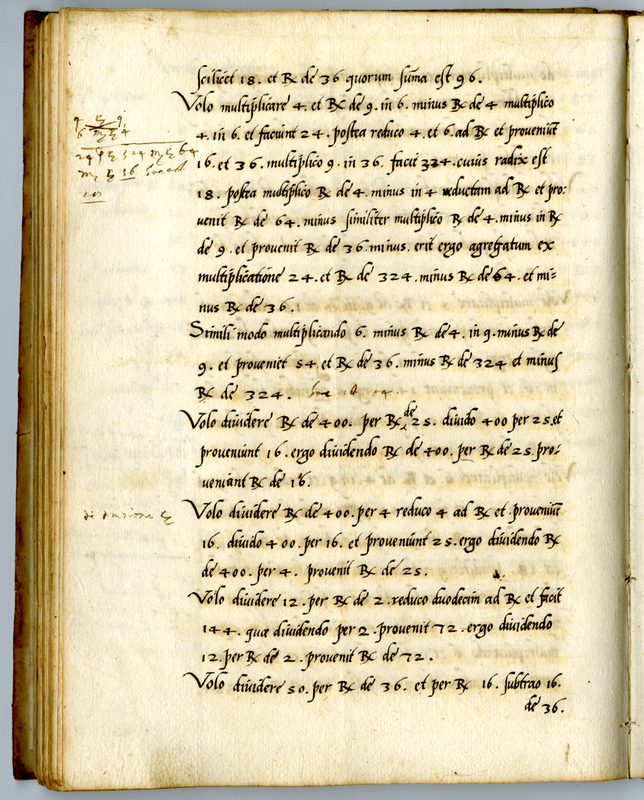 scilicet 18. et ℞ de 36 quorum suma est 96.
Volo multiplicare 4. et ℞ de 9. in 6. minus ℞ de 4 multiplico
4. in 6. et faciunt 24. postea reduco 4. et 6. ad ℞ et proveniūt
16. et 36. multiplico 9. in 36. facit 324. cuius radix est
18. postea multiplico ℞ de 4. minus in 4 reductam ad ℞ et pro:
venit ℞ de 64. minus similiter multiplico ℞ de 4. minus in ℞
de 9. et provenit ℞ de 36. minus. erit ergo agregatum ex
multiplicatione 24. et ℞ de 324. minus ℞ de 64. et mi=
nus ℞ de 36.
Simili modo multiplicando 6. minus ℞ de 4. in 9. minus ℞ de
9. et proveniet 54. et ℞ de 36. minus ℞ de 324 et minus
℞ de 324.
Volo dividere ℞ de 400. per ℞ de 25. divido 400 per 25. et
proveniunt 16. ergo dividendo ℞ de 400. per ℞ de 25. pro:
veniant ℞ de 16.
Volo dividere ℞ de 400. per 4 reduco 4 ad ℞ et proveniūt
16. divido 400. per 16. et proveniunt 25. ergo dividendo ℞
de 400. per 4. provenit ℞ de 25.
Volo dividere 12. per ℞ de 2. reduco duodecim ad ℞ et facit
144. quæ dividendo per 2. provenit 72. ergo dividendo
12. per ℞ de 2. provenit ℞ de 72.
Volo dividere 50. per ℞ de 36. et per ℞ 16. subtrao 16.
de 36.